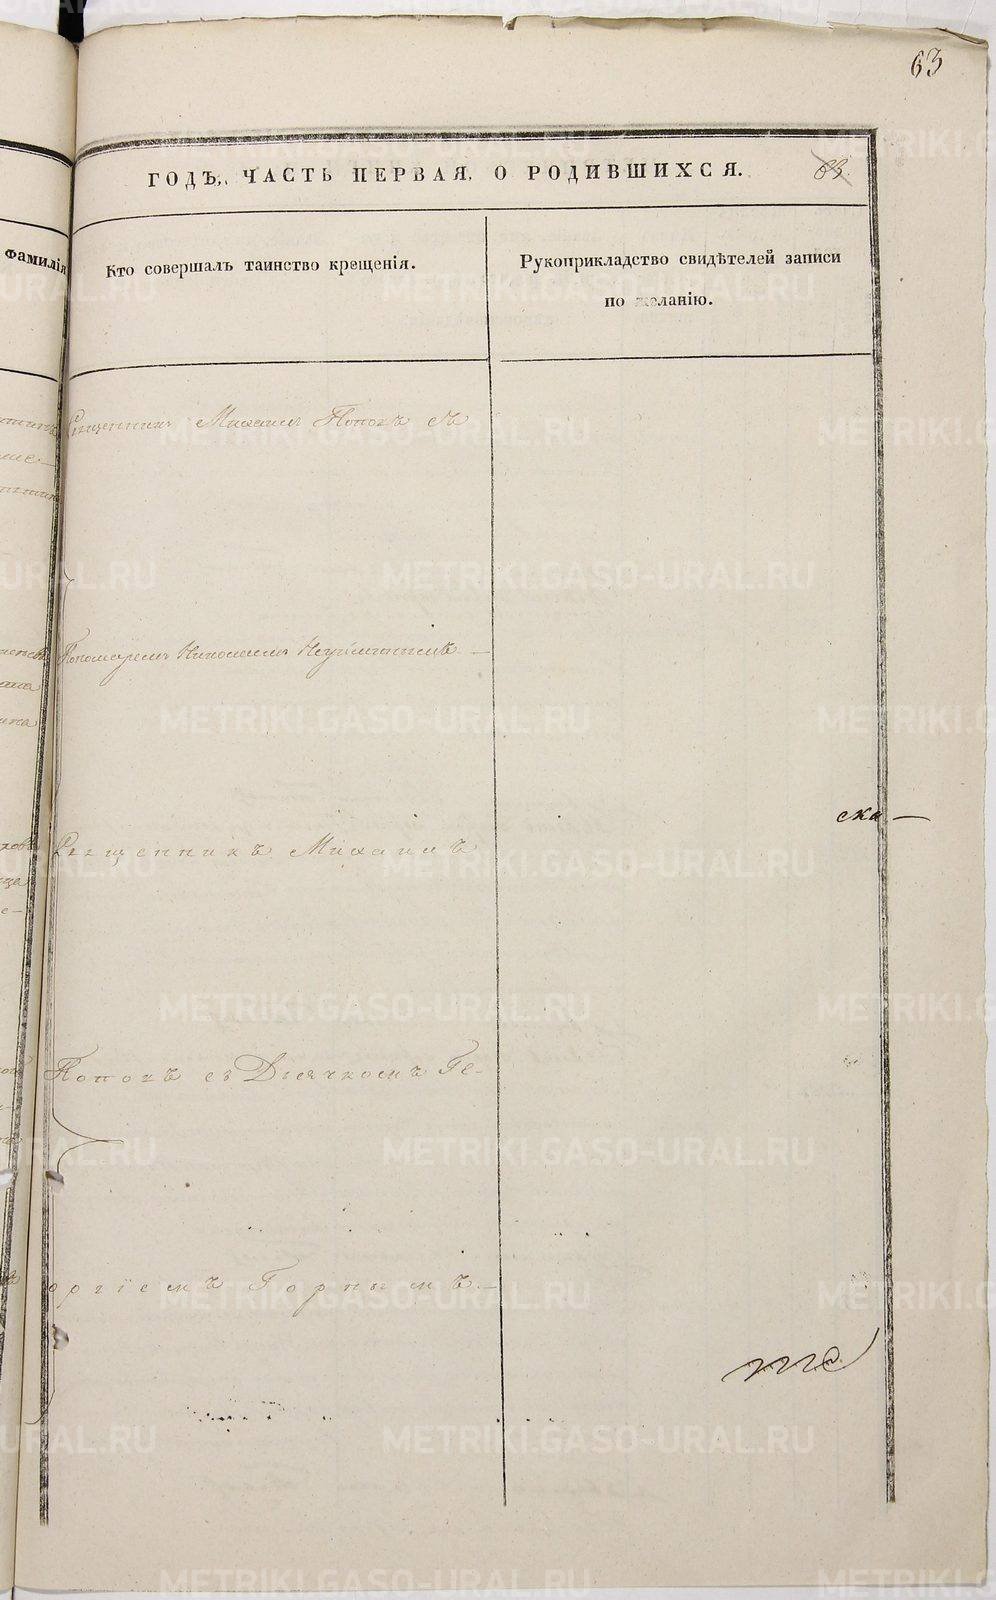 63
ГОДЪ, ЧАСТЬ ПЕРВАЯ, О РОДИВШИХСЯ.
83.
Фамилія
Кто совершалъ таинство крещенія.
Рукоприкладство свидѣтелей записи
по желанію.
Священникъ Михаилъ Поповъ съ
Пономаремъ Николаемъ
ска
Священникъ Михаилъ
Поповъ съ Дьячкомъ Ге-
оргіемъ Горнымъ
METRIKI.GASO-URAL.RU